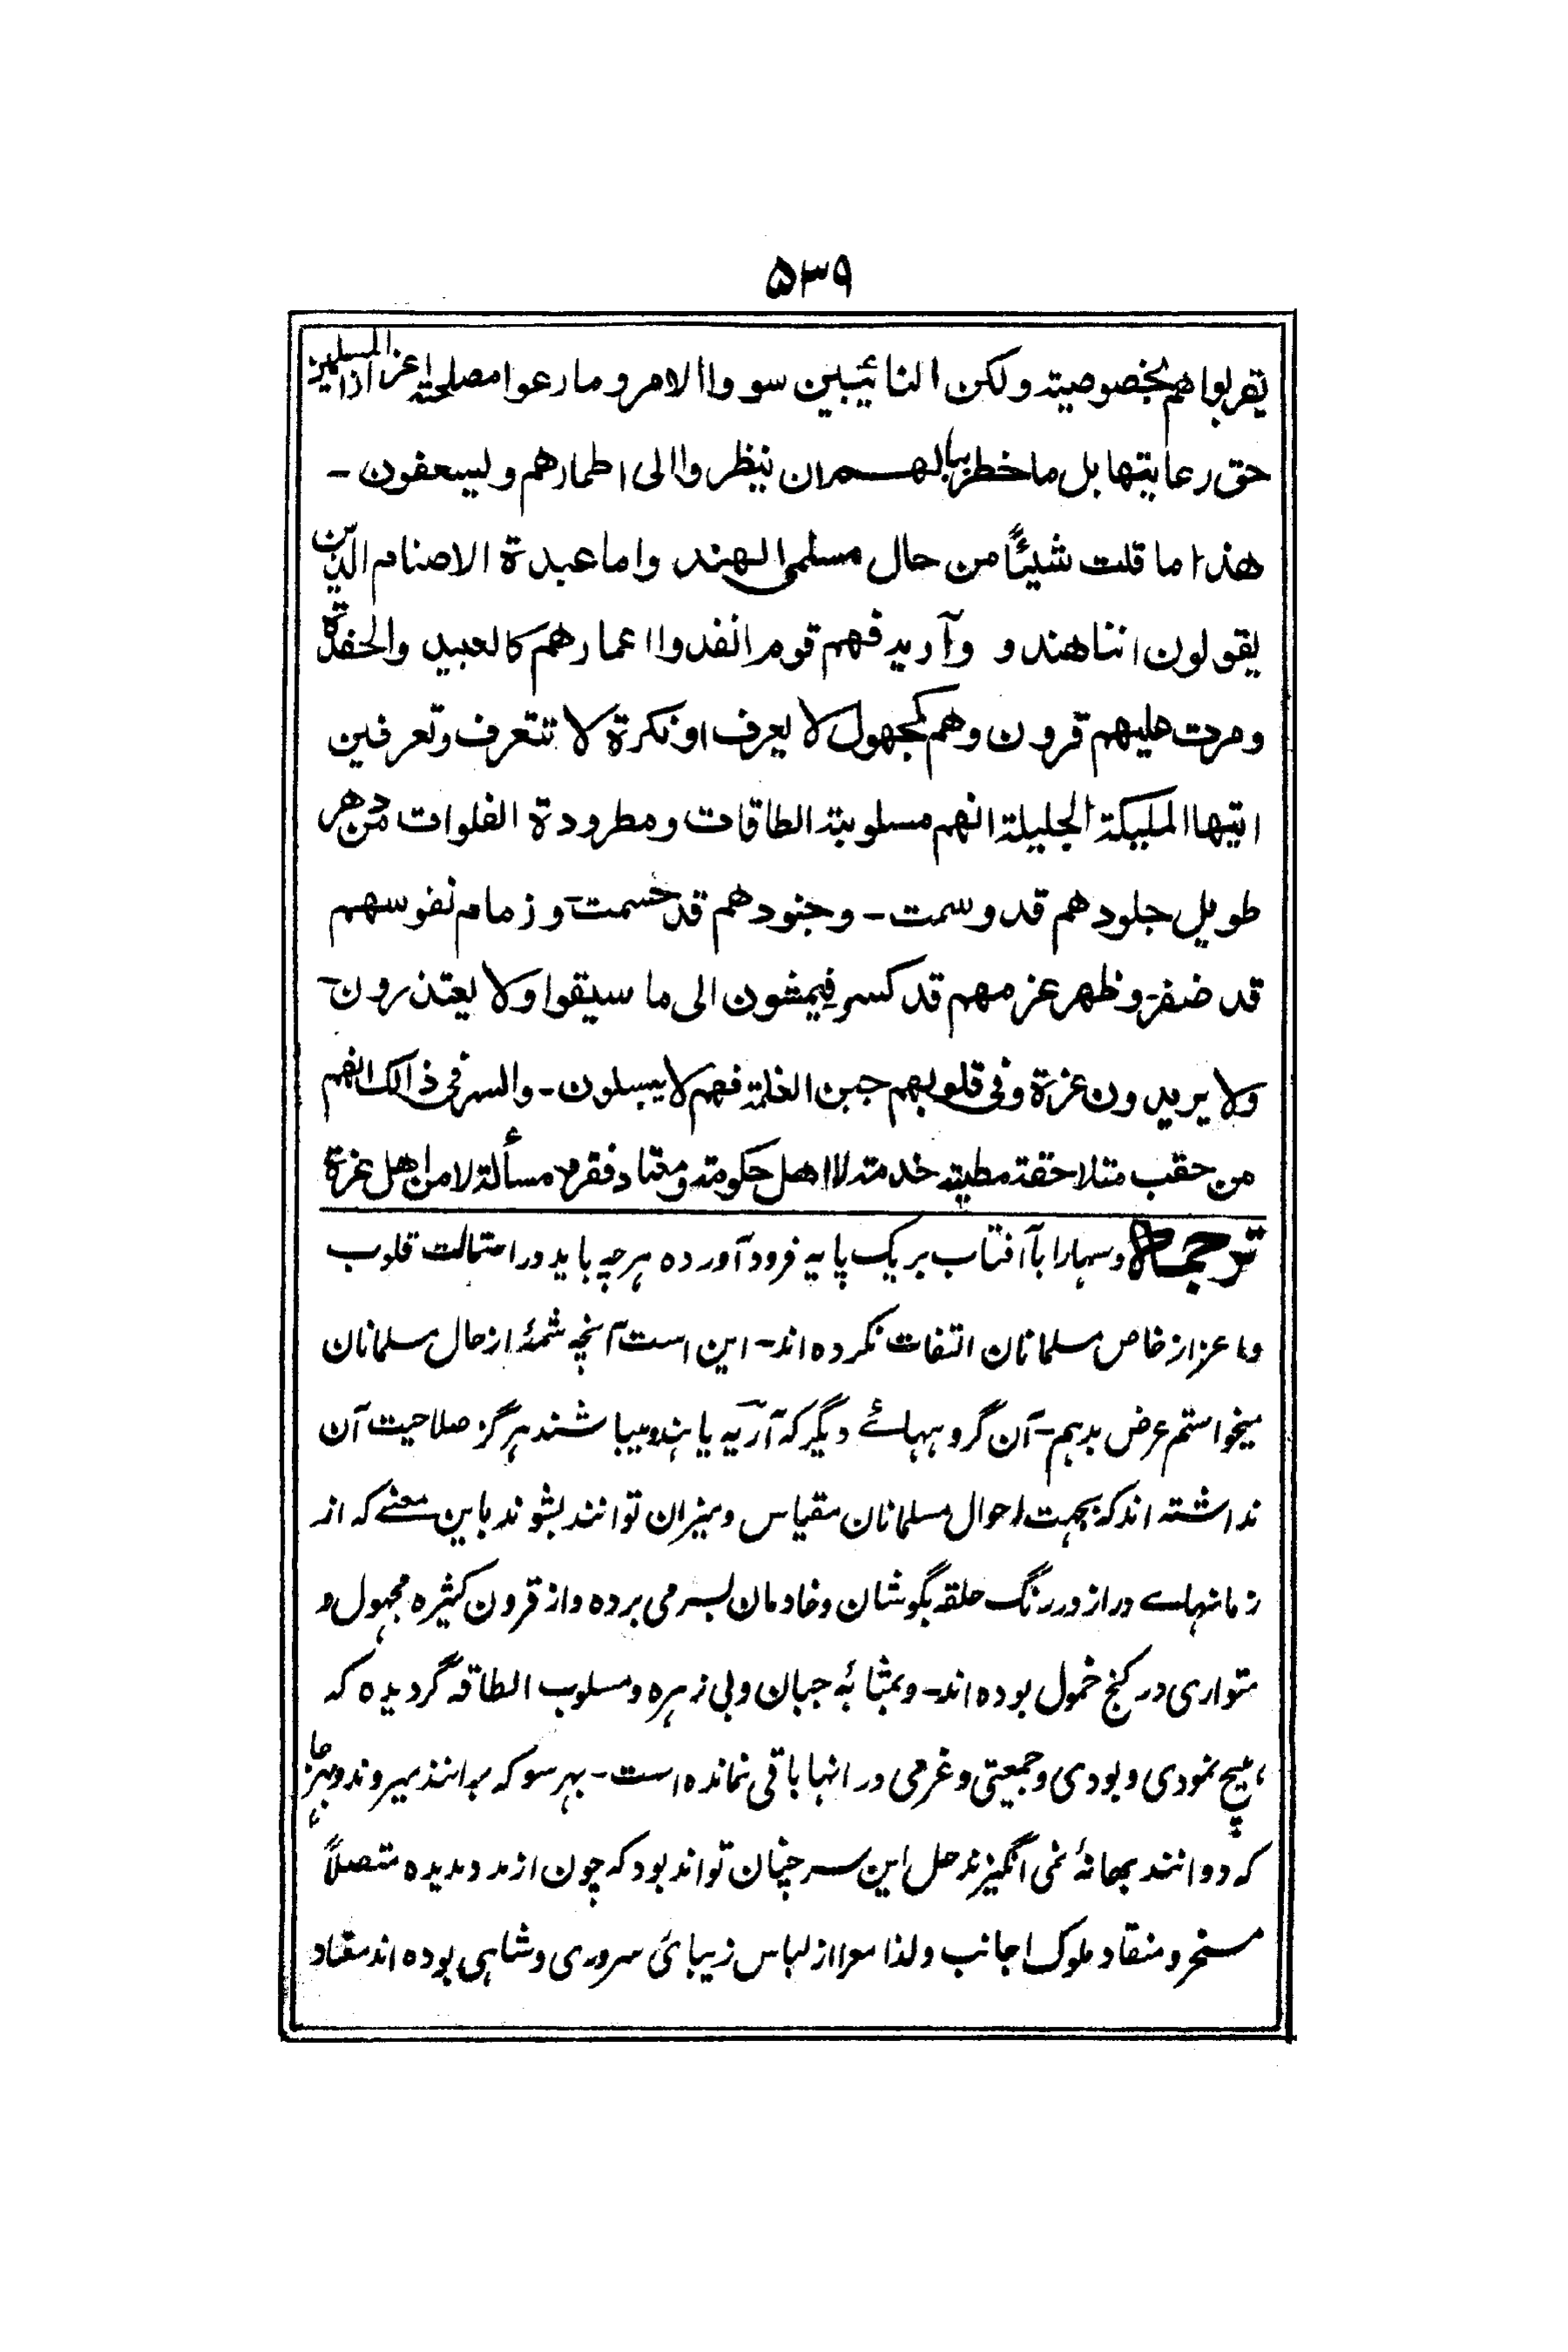 ۵۳۹
يقربواهم بخصوصيته ولكن النائيبين سووا الامر وما رعوا مصلحة اعزاز المسلمين
حق رعايتها بل ما خطر ببالهم ان ينظروا الى اطمارهم وليسعفون ـ
هذا ما قلت شيئًا من حال مسلمى الهند واما عبدة الاصنام الذين
يقولون اننا هندو وآريه فهم قوم انفدوا اعمارهم كالعبيد والحفدة
ومرت عليهم قرون وهم كمجهول لا يعرف او نكرة لا تتعرف وتعرفين
ايتها المليكة الجليلة انهم مسلوبة الطاقات ومطرودة الفلوات من دهر
طويل جلودهم قد وسمت ـ وجنودهم قد حسمت ـ وزمام نفوسهم
قد ضفر ـ وظهر عزمهم قد كسر فيمشون الى ما سيقوا ولا يعتذرون ـ
ولا يريدون عزة وفى قلوبهم جبن الغلمة فهم لا يبسلون ـ والسر فى ذالك انهم
من حقب متلاحقة مطية خدمة لا اهل حكومة ومعتاد فقر ومسألة لا من اهل عزة
ترجمه وسہارا باآفتاب بریک پایہ فرود آوردہ ہرچہ باید در استمالت قلوب
و اعزاز خاص مسلمانان التفات نکردہ اند ـ این است آنچہ شمۂ از حال مسلمانان
میخواستم عرض بدہم ـ آن گروہہائے دیگر کہ آریہ یا ہندو میباشند ہرگز صلاحیت آن
نداشتہ اند کہ بجہت احوال مسلمانان مقیاس و میزان توانند بشوند باین معنے کہ از
زمانہاے دراز در رنگ حلقہ بگوشان و خادمان بسر می بردہ و از قرون کثیرہ مجہول و
متواری در کنج خمول بودہ اند ـ و بمثابۂ جبان و بی زہرہ و مسلوب الطاقہ گردیدہ کہ
ہیچ نمودی و بودی و جمعیتی و عزمی در انہا باقی نماندہ است ـ بہر سو کہ برانند میروند و بہر جا
کہ دوانند بہانۂ نمی انگیزند حل این سر چنان تواند بود کہ چون از مدد مدیدہ متصلاً
مسخر و منقاد ملوک اجانب و لذا معرا از لباس زیبائ سروری و شاہی بودہ اند معتاد